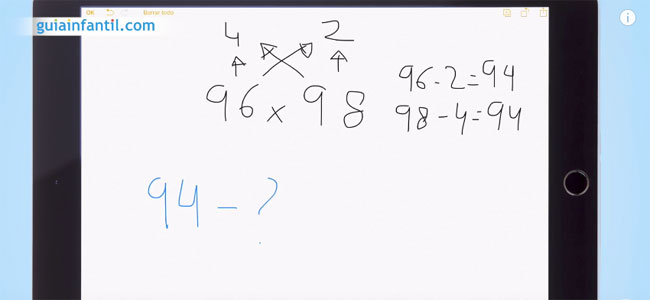 guiainfantil.com
OK Borrar todo
4 2
96 x 98
96-2=94
98-4=94
94-?